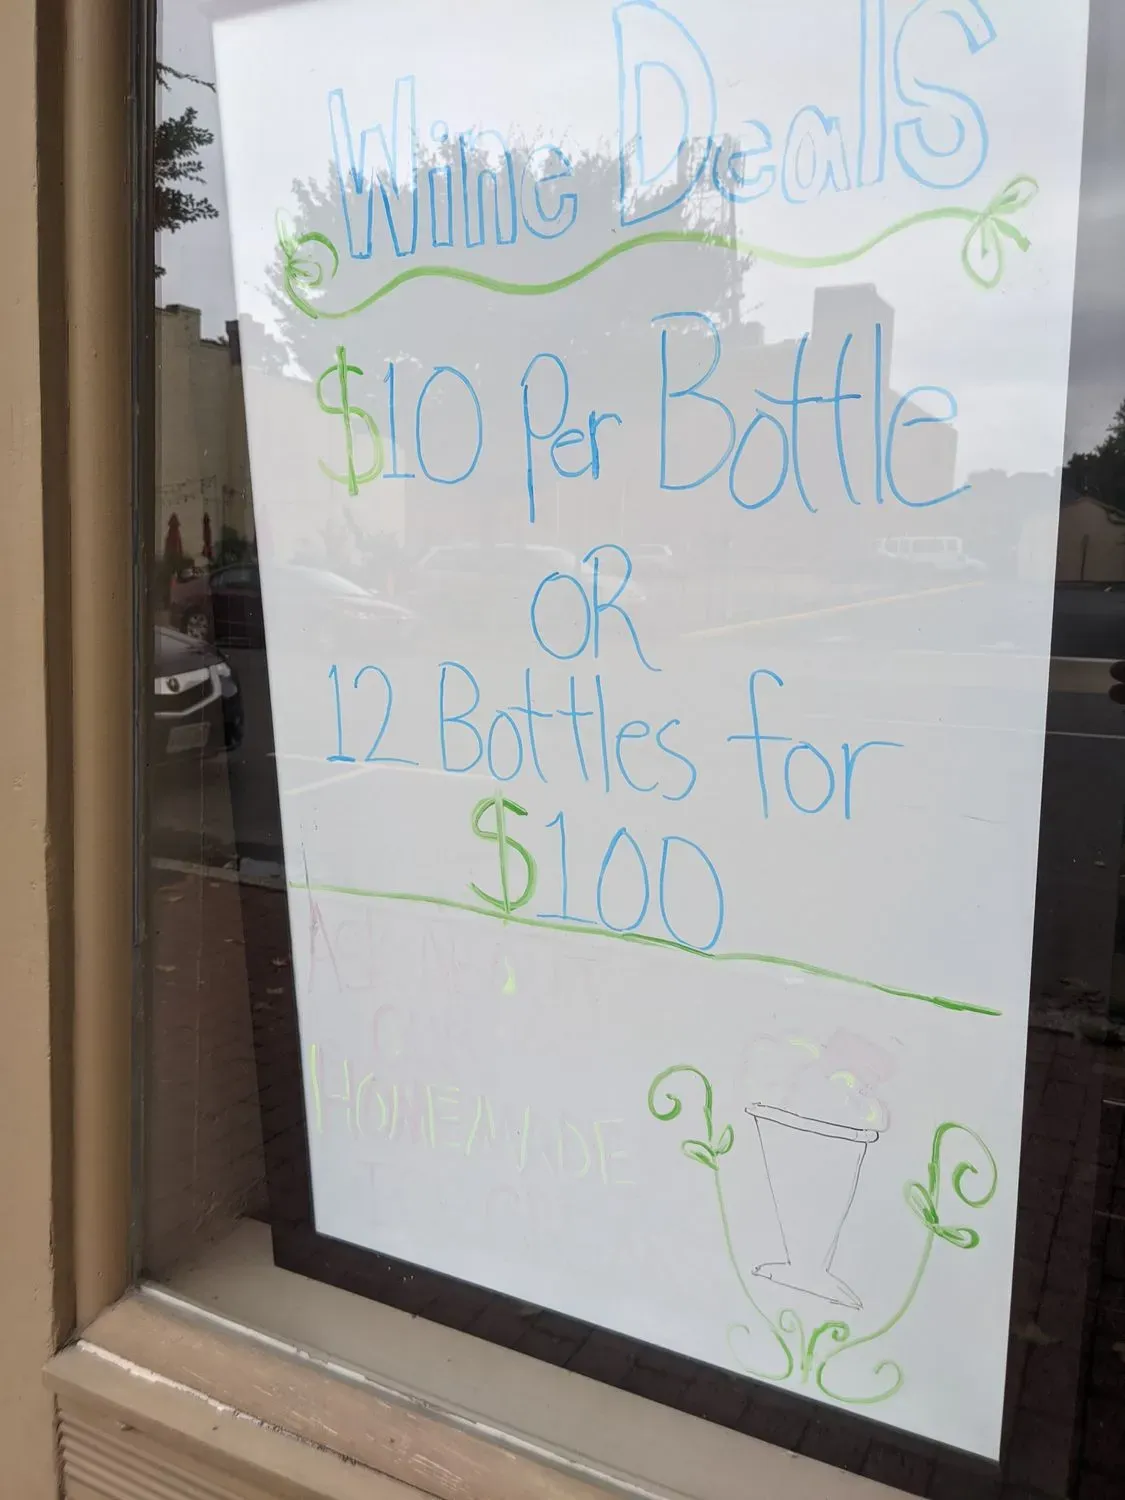 Wine Deals
$10 Per Bottle
OR
12 Bottles for
$100
ASK ABOUT
OUR
HOMEMADE